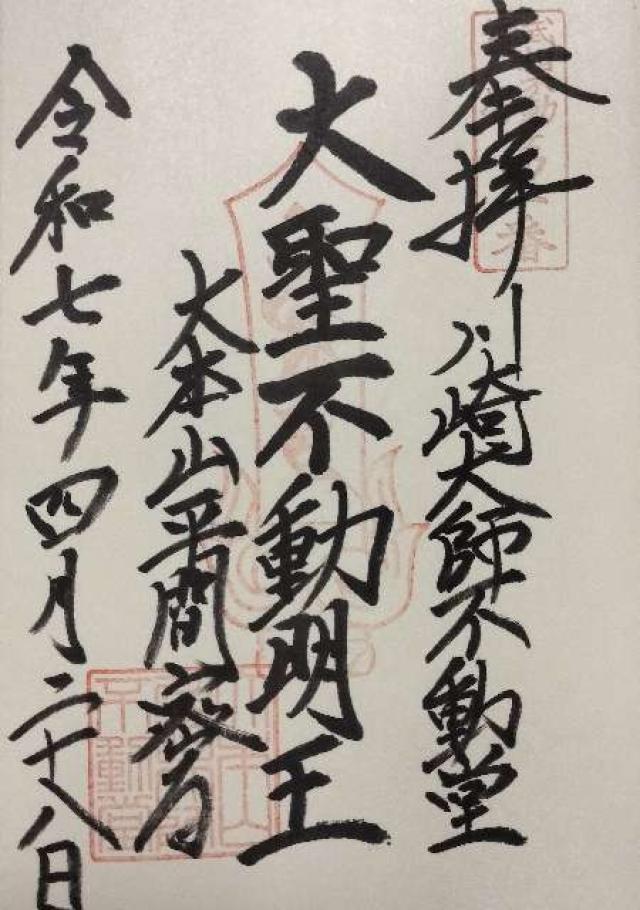 奉拝
川崎大師不動堂
大聖不動明王
大本山平間寺
令和七年四月二十八日
不動堂